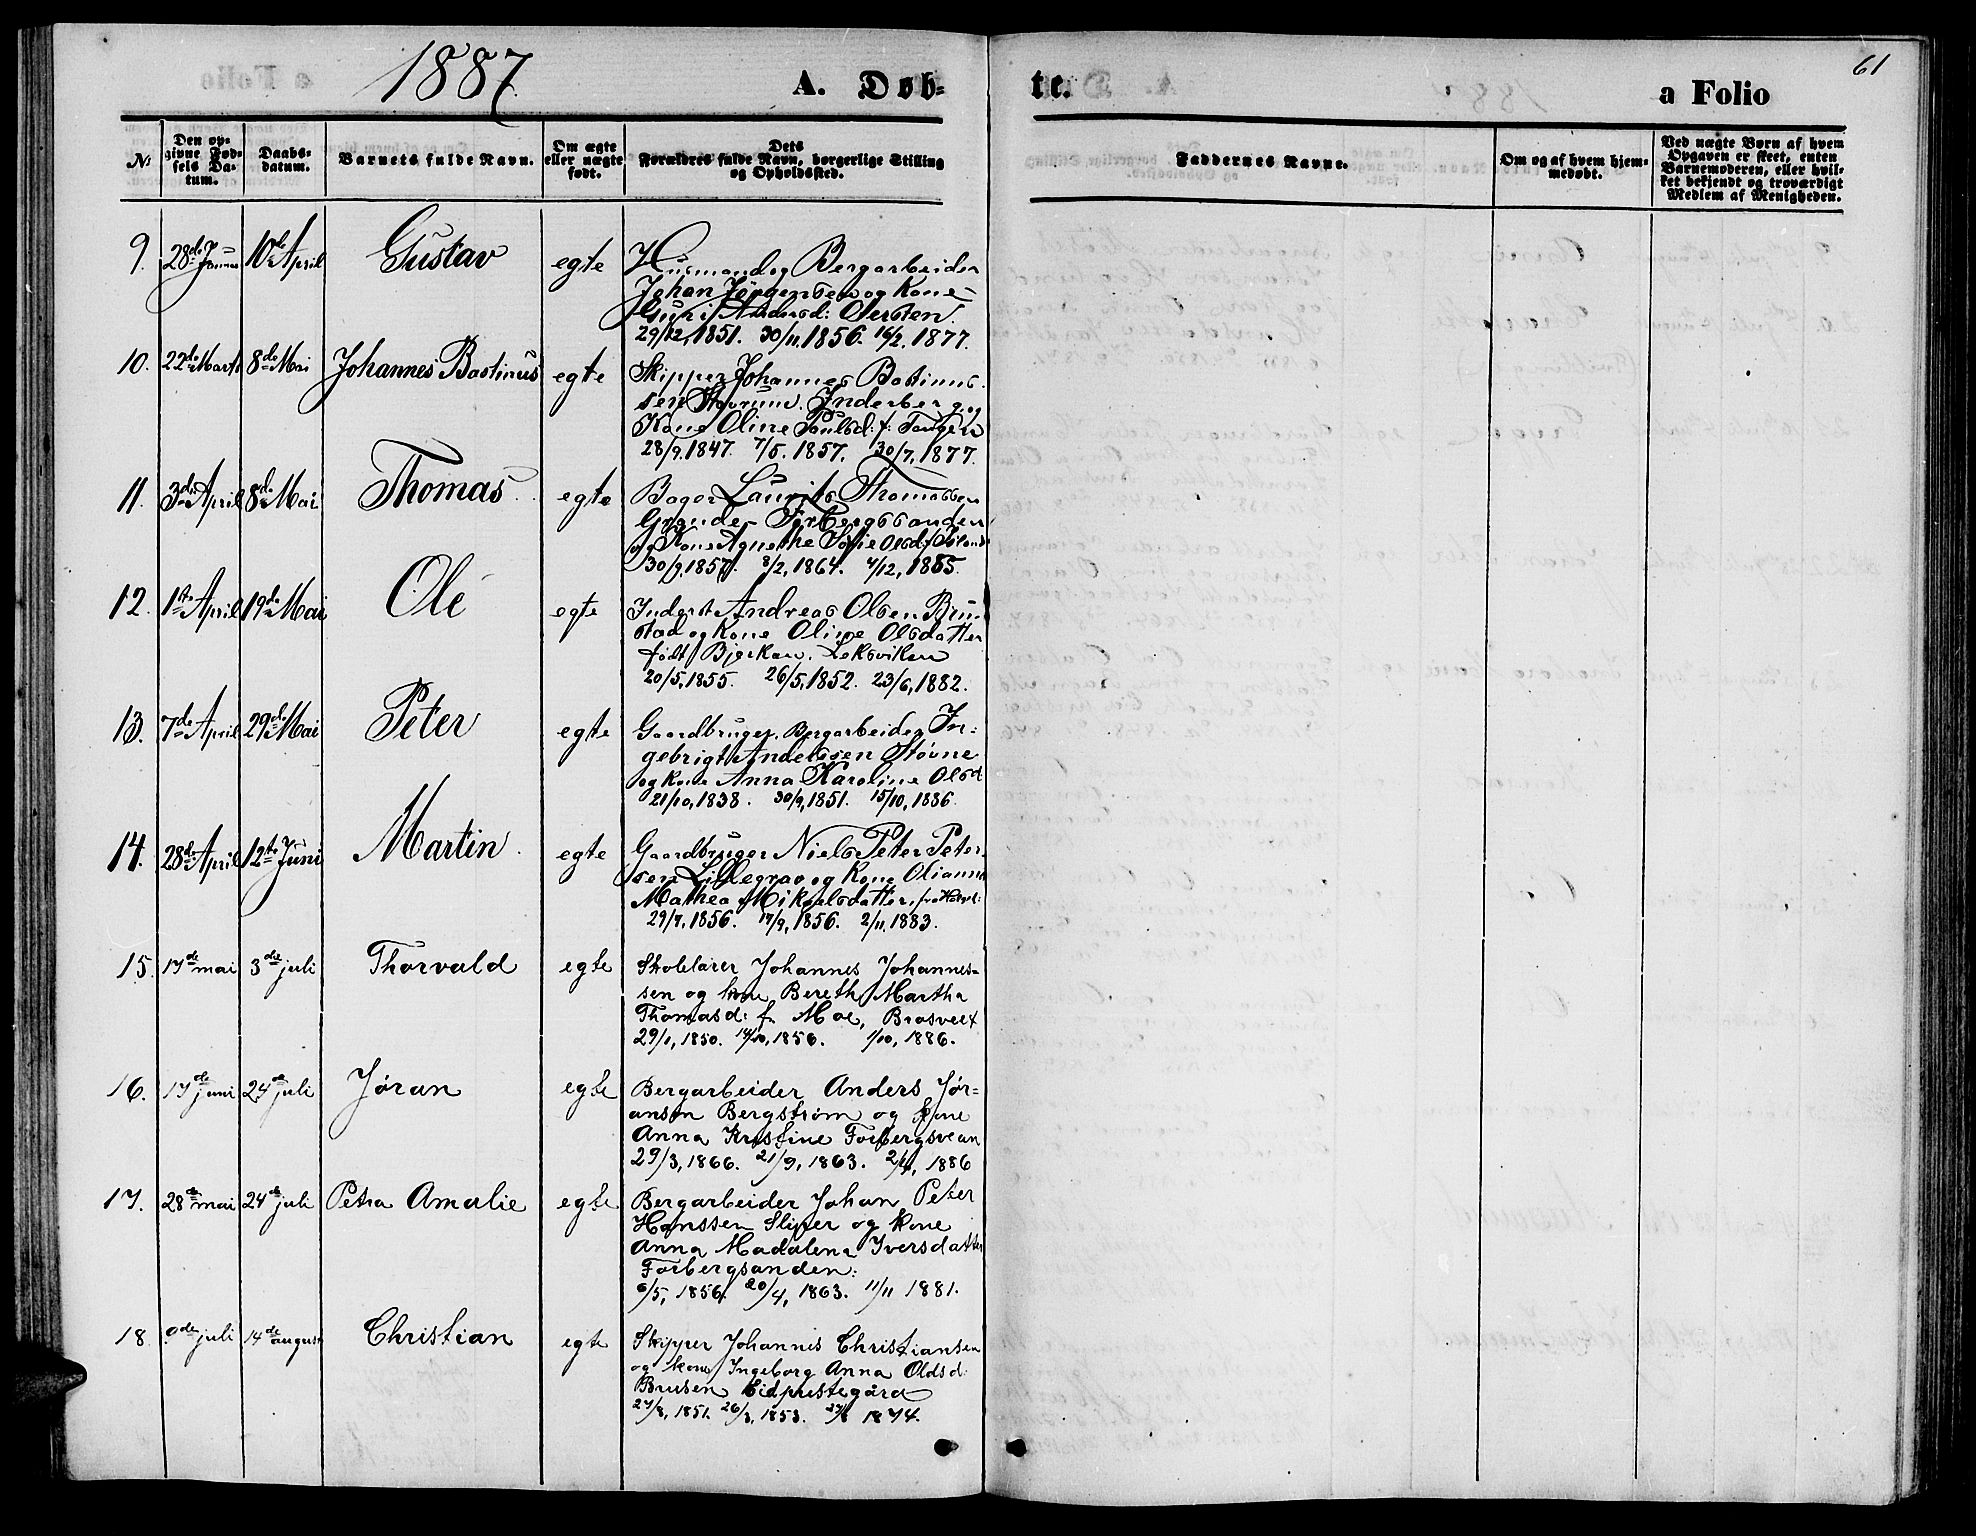 1887
A. Døb-
te.
a Folio
61
No
Den op-
givne Fød-
sels Da-
tum.
Daabs-
datum.
Barnets fulde Navn.
Om ægte
eller uægte
født.
Dets
Forældres fulde Navn, borgerlige Stilling
og Opholdssted.
Faddernes Navne.
Om og af hvem hjem-
medøbt.
Ved uægte Børn af hvem
Opgaven er skeet, enten
Barnemoderen, eller hvil-
ket bekjendt og troværdigt
Medlem af Menigheden.
9. 28de 10de April Gustav egte Husmand og Bergarbeider
Johan Jörgensen og Kone
Guri Andersd:
29/12, 1851. 30/11, 1856. 16/2, 1877.
10. 22de Marts 8de Mai Johannes Bastinus egte Skipper Johannes Bastinus-
sen Inderberg og
Kone Oline Paulsd: f. Tangen
28/9, 1847. 7/5, 1857. 30/7, 1877.
11. 3de April 8de Mai Thomas egte Bager Laurits Thomassen
Grande Forbergssanden
og Kone Agnethe Sofie Olsd. f.
30/9, 1857. 8/2, 1864. 4/12, 1885.
12. 1ste April 19de Mai Ole egte Inderst Andreas Olsen Brun-
stad og Kone Oline Olsdatter
født Bjerkan. Leksviken
20/5, 1855. 26/5, 1852. 23/6, 1882.
13. 7de April 29de Mai Peter egte Gaardbruger, Bergarbeider In-
gebrigt Anderssen Støvne
og Kone Anna Karoline Olsd
21/10, 1838. 30/9, 1851. 15/10, 1886.
14. 28de April 12te Juni Martin egte Gaardbruger Niels Peter Peter-
sen Lillegrav og Kone Olianna
Mathea Mikaelsdatter, fra
29/7, 1856. 17/9, 1856. 2/11, 1883.
15. 17de mai 3de juli Thorvald egte Skolelærer Johannes Johannes-
sen og kone Bereth Martha
Thomasd: f. Moe,
29/1, 1850. 14/10, 1856. 1/10, 1886.
16. 17de juni 24de juli Jøran egte Bergarbeider Anders Jør-
ansen Bergstrøm og kone
Anna Kristine Forbergsvean
29/3, 1866. 21/9, 1863. 1886
17. 28de mai 24de juli Petra Amalie egte Bergarbeider Johan Peter
Hanssen Sliper og kone
Anna Madalena Iversdatter
Forbergsanden:
6/5, 1856. 20/4, 1863. 11/11 1881.
18. 9de juli 14de august Christian egte Skipper Johannis Christiansen
og kone Ingeborg Anna Oldsd:
Brusen Eidprestegård
27/8, 1851. 26/3, 1853. 1874.